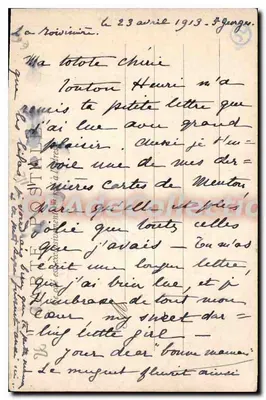 le 23 avril 1913 - St Georges.
La
Ma totote chérie
Tonton Henri m'a
remis ta petite lettre que
j'ai lue avec grand
plaisir. Aussi je t'en-
voie une de mes der-
nières cartes de Menton
parcequ'elle est plus
jolie que toutes celles
que j'avais - Tu m'as
écrit une longue lettre,
que j'ai bien lue, et je
t'embrasse de tout mon
cœur my sweet dar-
ling little girl -
Your dear "bonne maman"
Le muguet fleurit ainsi
que les lilas